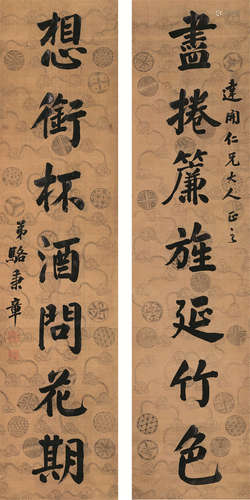 盡捲簾旌延竹色
達開仁兄大人正之
想銜杯酒問花期
弟駱秉章